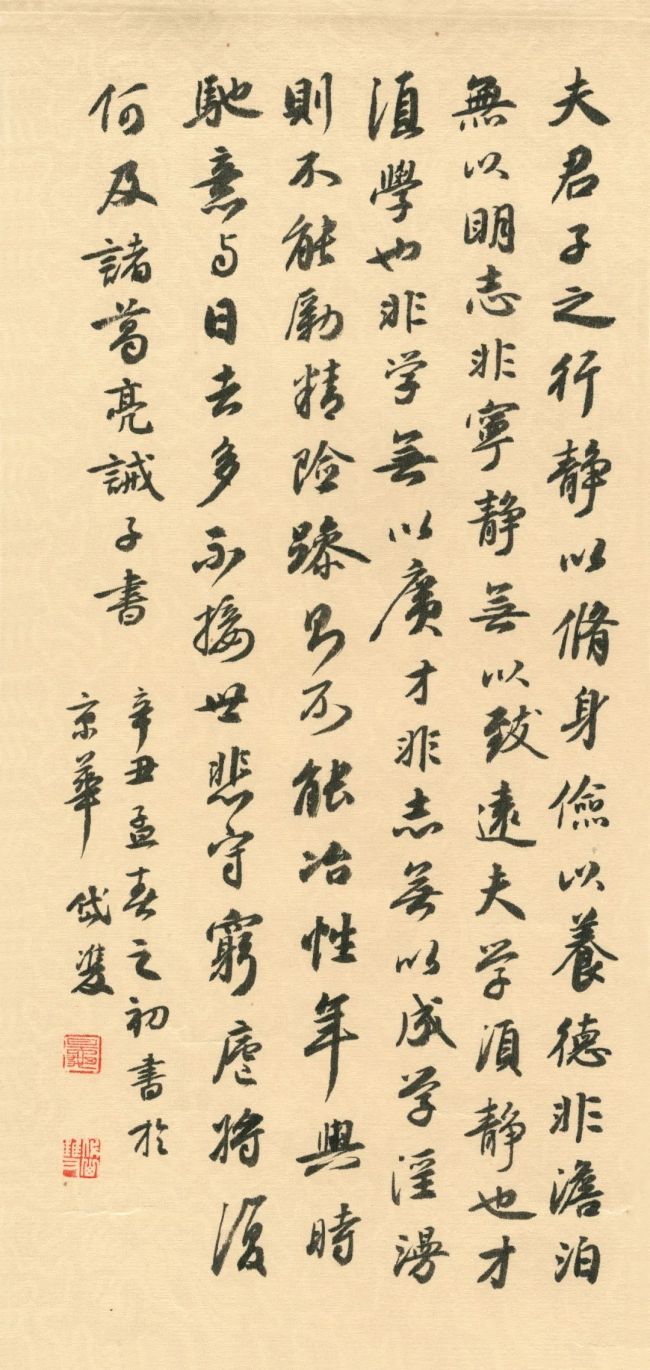 夫君子之行静以脩身儉以養德非澹泊
無以明志非寧静無以致遠夫学須静也才
須學也非学無以廣才非志無以成学淫漫
則不能勵精险躁则不能冶性年與時
馳意与日去多不接世悲守窮廬将復
何及諸葛亮誡子書
辛丑孟春之初書於
京華 岱雙